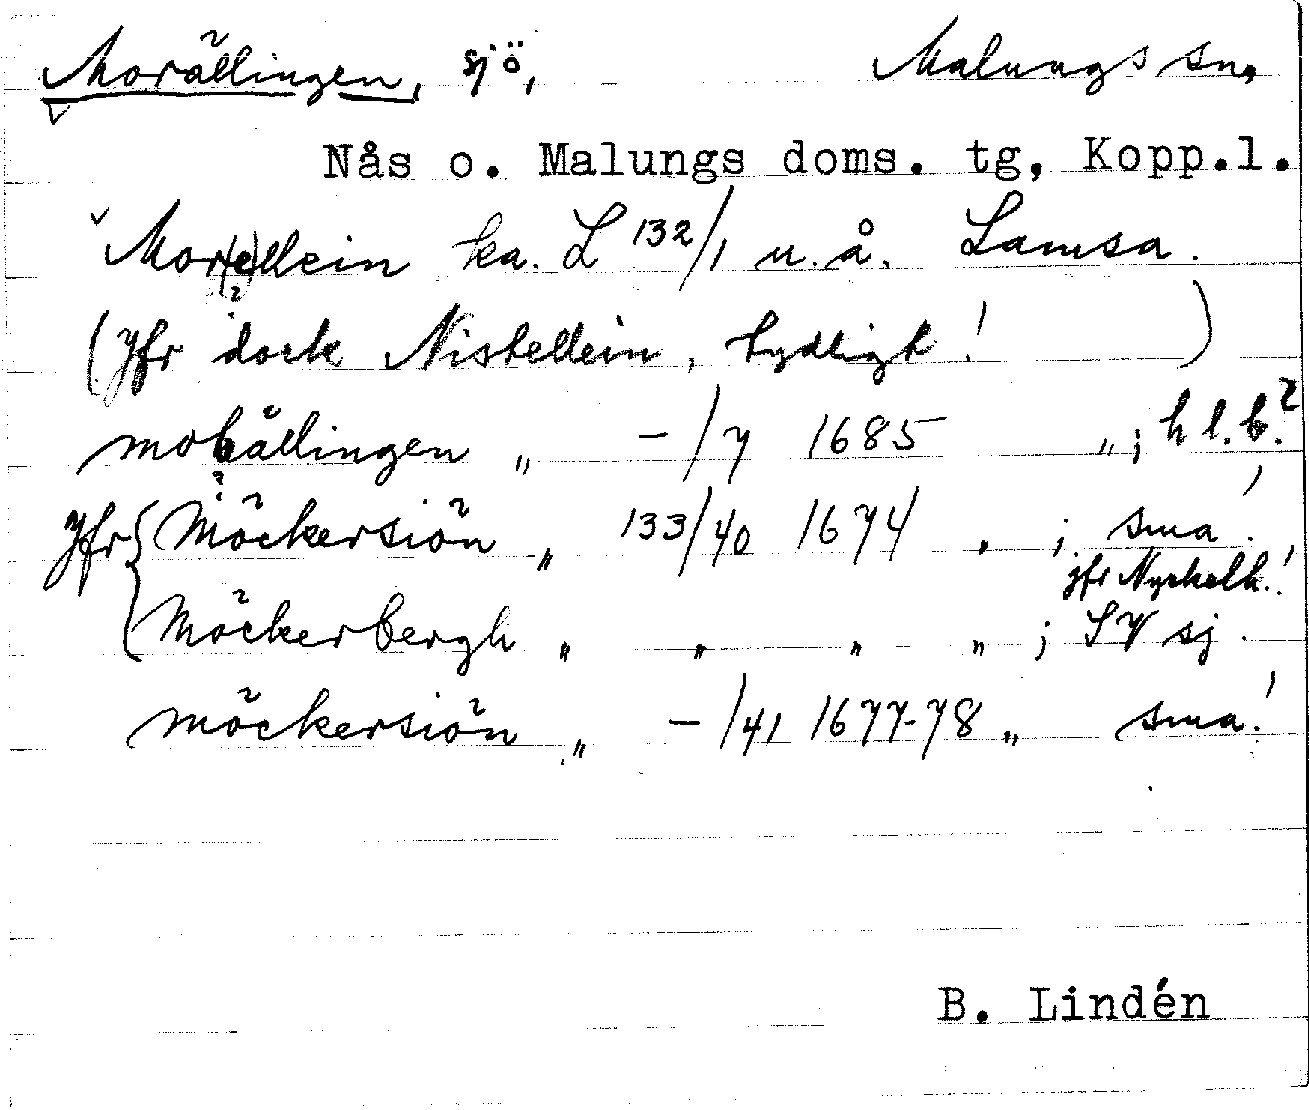 Morällingen, sjö, Malungs sn,
Nås o. Malungs doms. tg, Kopp.l.
Mor(e)llein ka. L 132/1 u.å. Lamsa.
(Jfr dock Nistellein, tydligt! )
mobällingen " -/7 1685 "; h l.b.?
Jfr { Möckersiön " 133/40 1674 " ; sma!
jfr Nyckelh.!
Möckerbergh " " " " ; SV sj.
möckersiön " -/41 1677-78 " sma!
B. Lindén